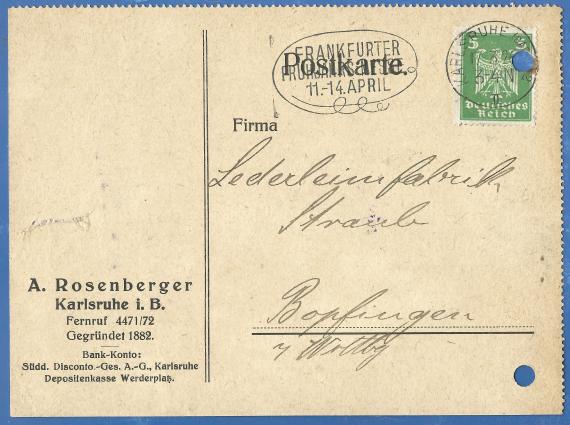 Postkarte.
FRANKFURTER
FRÜHJAHRSMESSE
11.-14. APRIL
KARLSRUHE
5
Deutsches
Reich
Firma
Lederleimfabrik
Straub
Bopfingen
A. Rosenberger
Karlsruhe i. B.
Fernruf 4471/72
Gegründet 1882.
Bank-Konto:
Südd. Disconto.-Ges. A.-G., Karlsruhe
Depositenkasse Werderplatz.